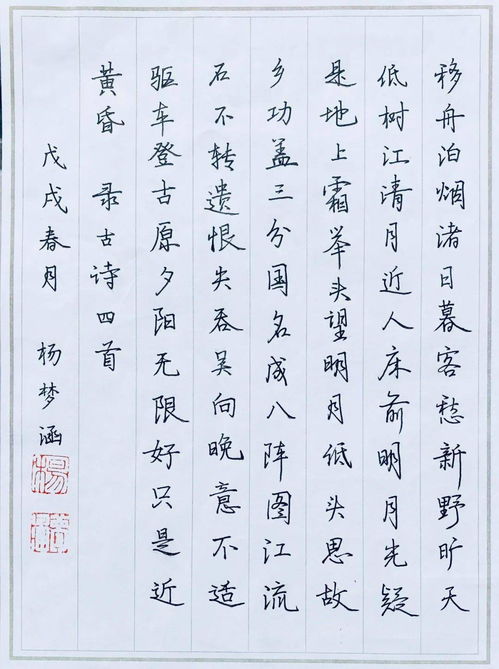 移舟泊烟渚日暮客愁新野旷天
低树江清月近人床前明月光疑
是地上霜举头望明月低头思故
乡功盖三分国名成八阵图江流
石不转遗恨失吞吴向晚意不适
驱车登古原夕阳无限好只是近
黄昏 录古诗四首
戊戌春月 杨梦涵